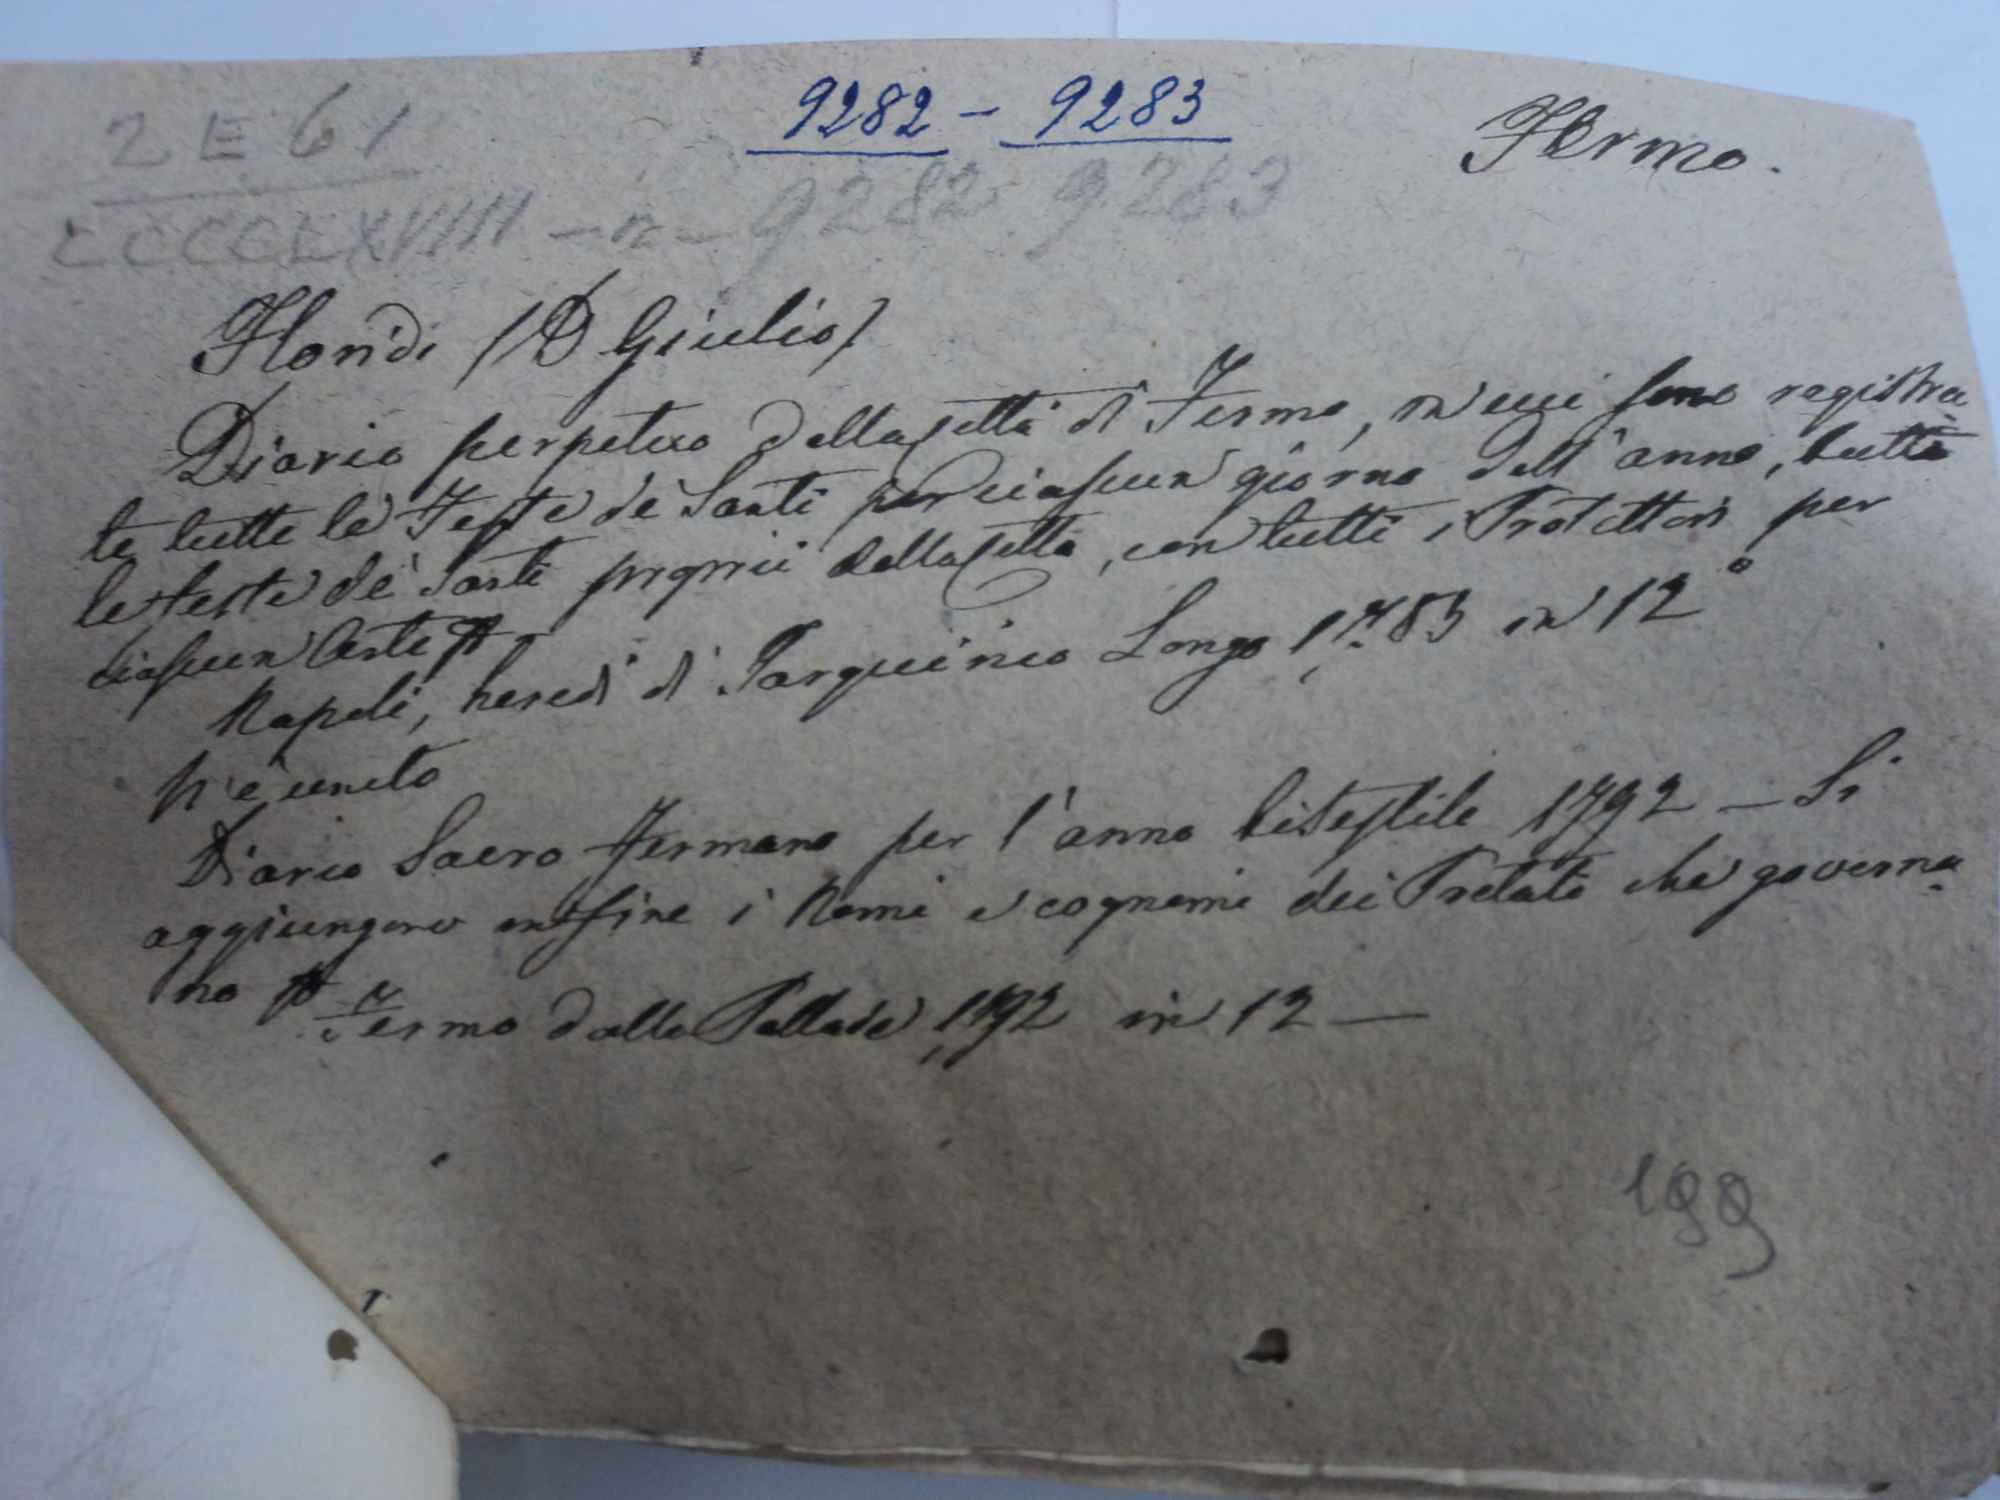 9282 - 9283
Fermo.
2 E 61
CCCCLXVIIII - n - 9282 9283
Floridi (D Giulio)
Diario perpetuo della città di Fermo, in cui sono registra
te tutte le Feste de' Santi per ciascun giorno dell'anno, tutte
le feste de' Santi proprii della città, con tutti i Protettori per
ciascun Arte
Napoli, heredi di Tarquinio Longo 1783 in 12°
V'è unito
Diario Sacro Fermano per l'anno bisestile 1792 - Si
aggiungono in fine i Nomi e cognomi dei Prelati che governa
no
Fermo dalla Pallade 1792 in 12 —
199